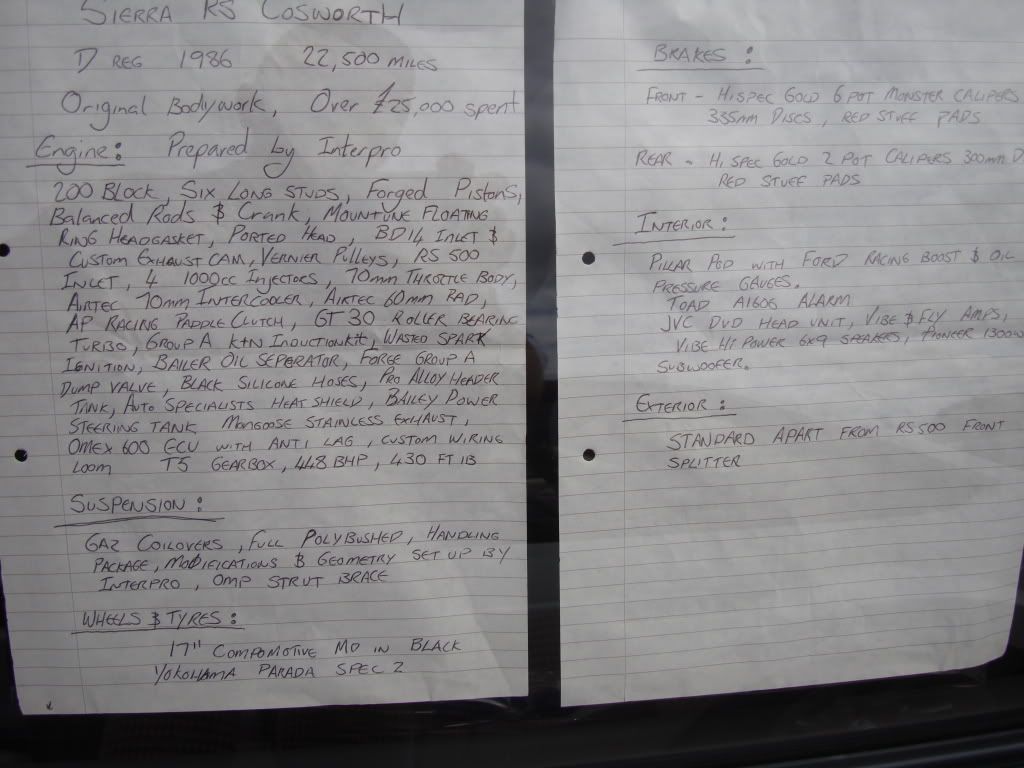 SIERRA RS COSWORTH
D REG 1986 22,500 MILES
Original Bodywork, Over £25,000 spent
Engine: Prepared by Interpro
200 BLOCK, SIX LONG STUDS, Forged Pistons,
Balanced Rods & Crank, MOUNTUNE FLOATING
RING HEADGASKET, PORTED HEAD, BD14 INLET &
CUSTOM EXHAUST CAM, VERNIER PULLEYS, RS 500
INLET, 4 1000cc INJECTORS, 70mm THROTTLE BODY,
AIRTEC 70mm INTERCOOLER, AIRTEC 60mm RAD,
AP RACING PADDLE CLUTCH, GT30 ROLLER BEARING
TURBO, GROUP A K+N INDUCTION KIT, WASTED SPARK
IGNITION, BAILER OIL SEPERATOR, FORGE GROUP A
DUMP VALVE, BLACK SILICONE HOSES, PRO ALLOY HEADER
TANK, AUTO SPECIALISTS HEAT SHIELD, BAILEY POWER
STEERING TANK MONGOOSE STAINLESS EXHAUST,
OMEX 600 ECU WITH ANTI LAG, CUSTOM WIRING
LOOM T5 GEARBOX, 448 BHP, 430 FT lB
SUSPENSION:
GAZ COILOVERS, FULL POLYBUSHED, HANDLING
PACKAGE, MODIFICATIONS & GEOMETRY SET UP BY
INTERPRO, OMP STRUT BRACE
WHEELS & TYRES:
17" COMPOMOTIVE MO IN BLACK
YOKOHAMA PARADA SPEC 2
BRAKES:
FRONT - HISPEC GOLD 6 POT MONSTER CALIPERS
335mm DISCS, RED STUFF PADS
REAR - HI SPEC GOLD 2 POT CALIPERS 300mm D
RED STUFF PADS
INTERIOR:
PILLAR POD WITH FORD RACING BOOST & OIL
PRESSURE GAUGES.
TOAD A1606 ALARM
JVC DVD HEAD UNIT, VIBE & FLY AMPS,
VIBE HI POWER 6x9 SPEAKERS, PIONEER 1300W
SUBWOOFER.
EXTERIOR:
STANDARD APART FROM RS500 FRONT
SPLITTER